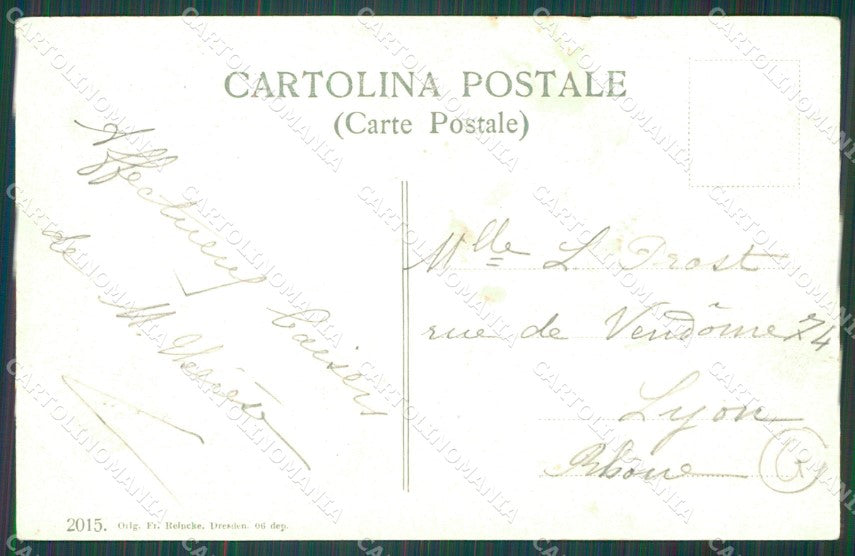 CARTOLINA POSTALE
(Carte Postale)
Affectueux
Baisers
de M.
Mlle L. Prost
rue de Vendôme 74
Lyon
Rhône
2015. Orig. Fr. Reincke, Dresden. 06 dep.
CARTOLINOMANIA